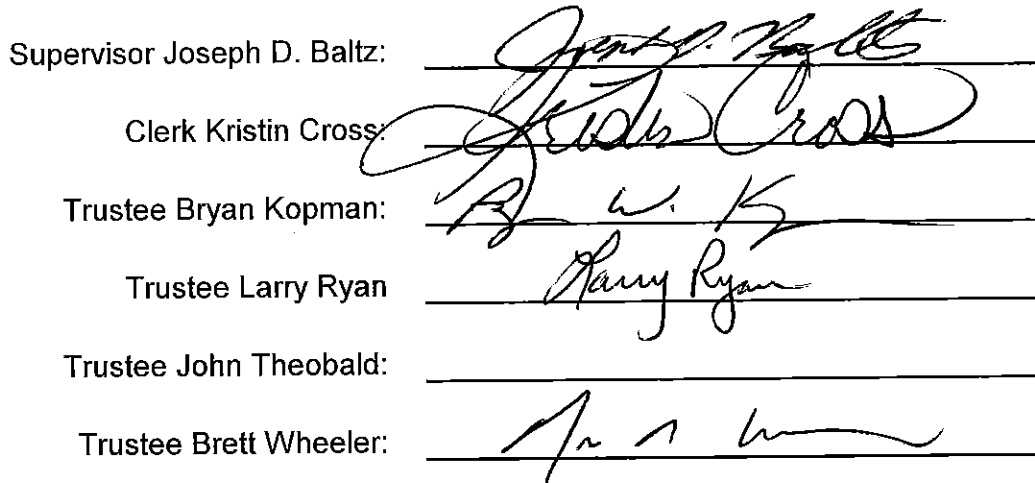 Supervisor Joseph D. Baltz:
Clerk Kristin Cross: Kristin Cross
Trustee Bryan Kopman:
Trustee Larry Ryan Larry Ryan
Trustee John Theobald:
Trustee Brett Wheeler: